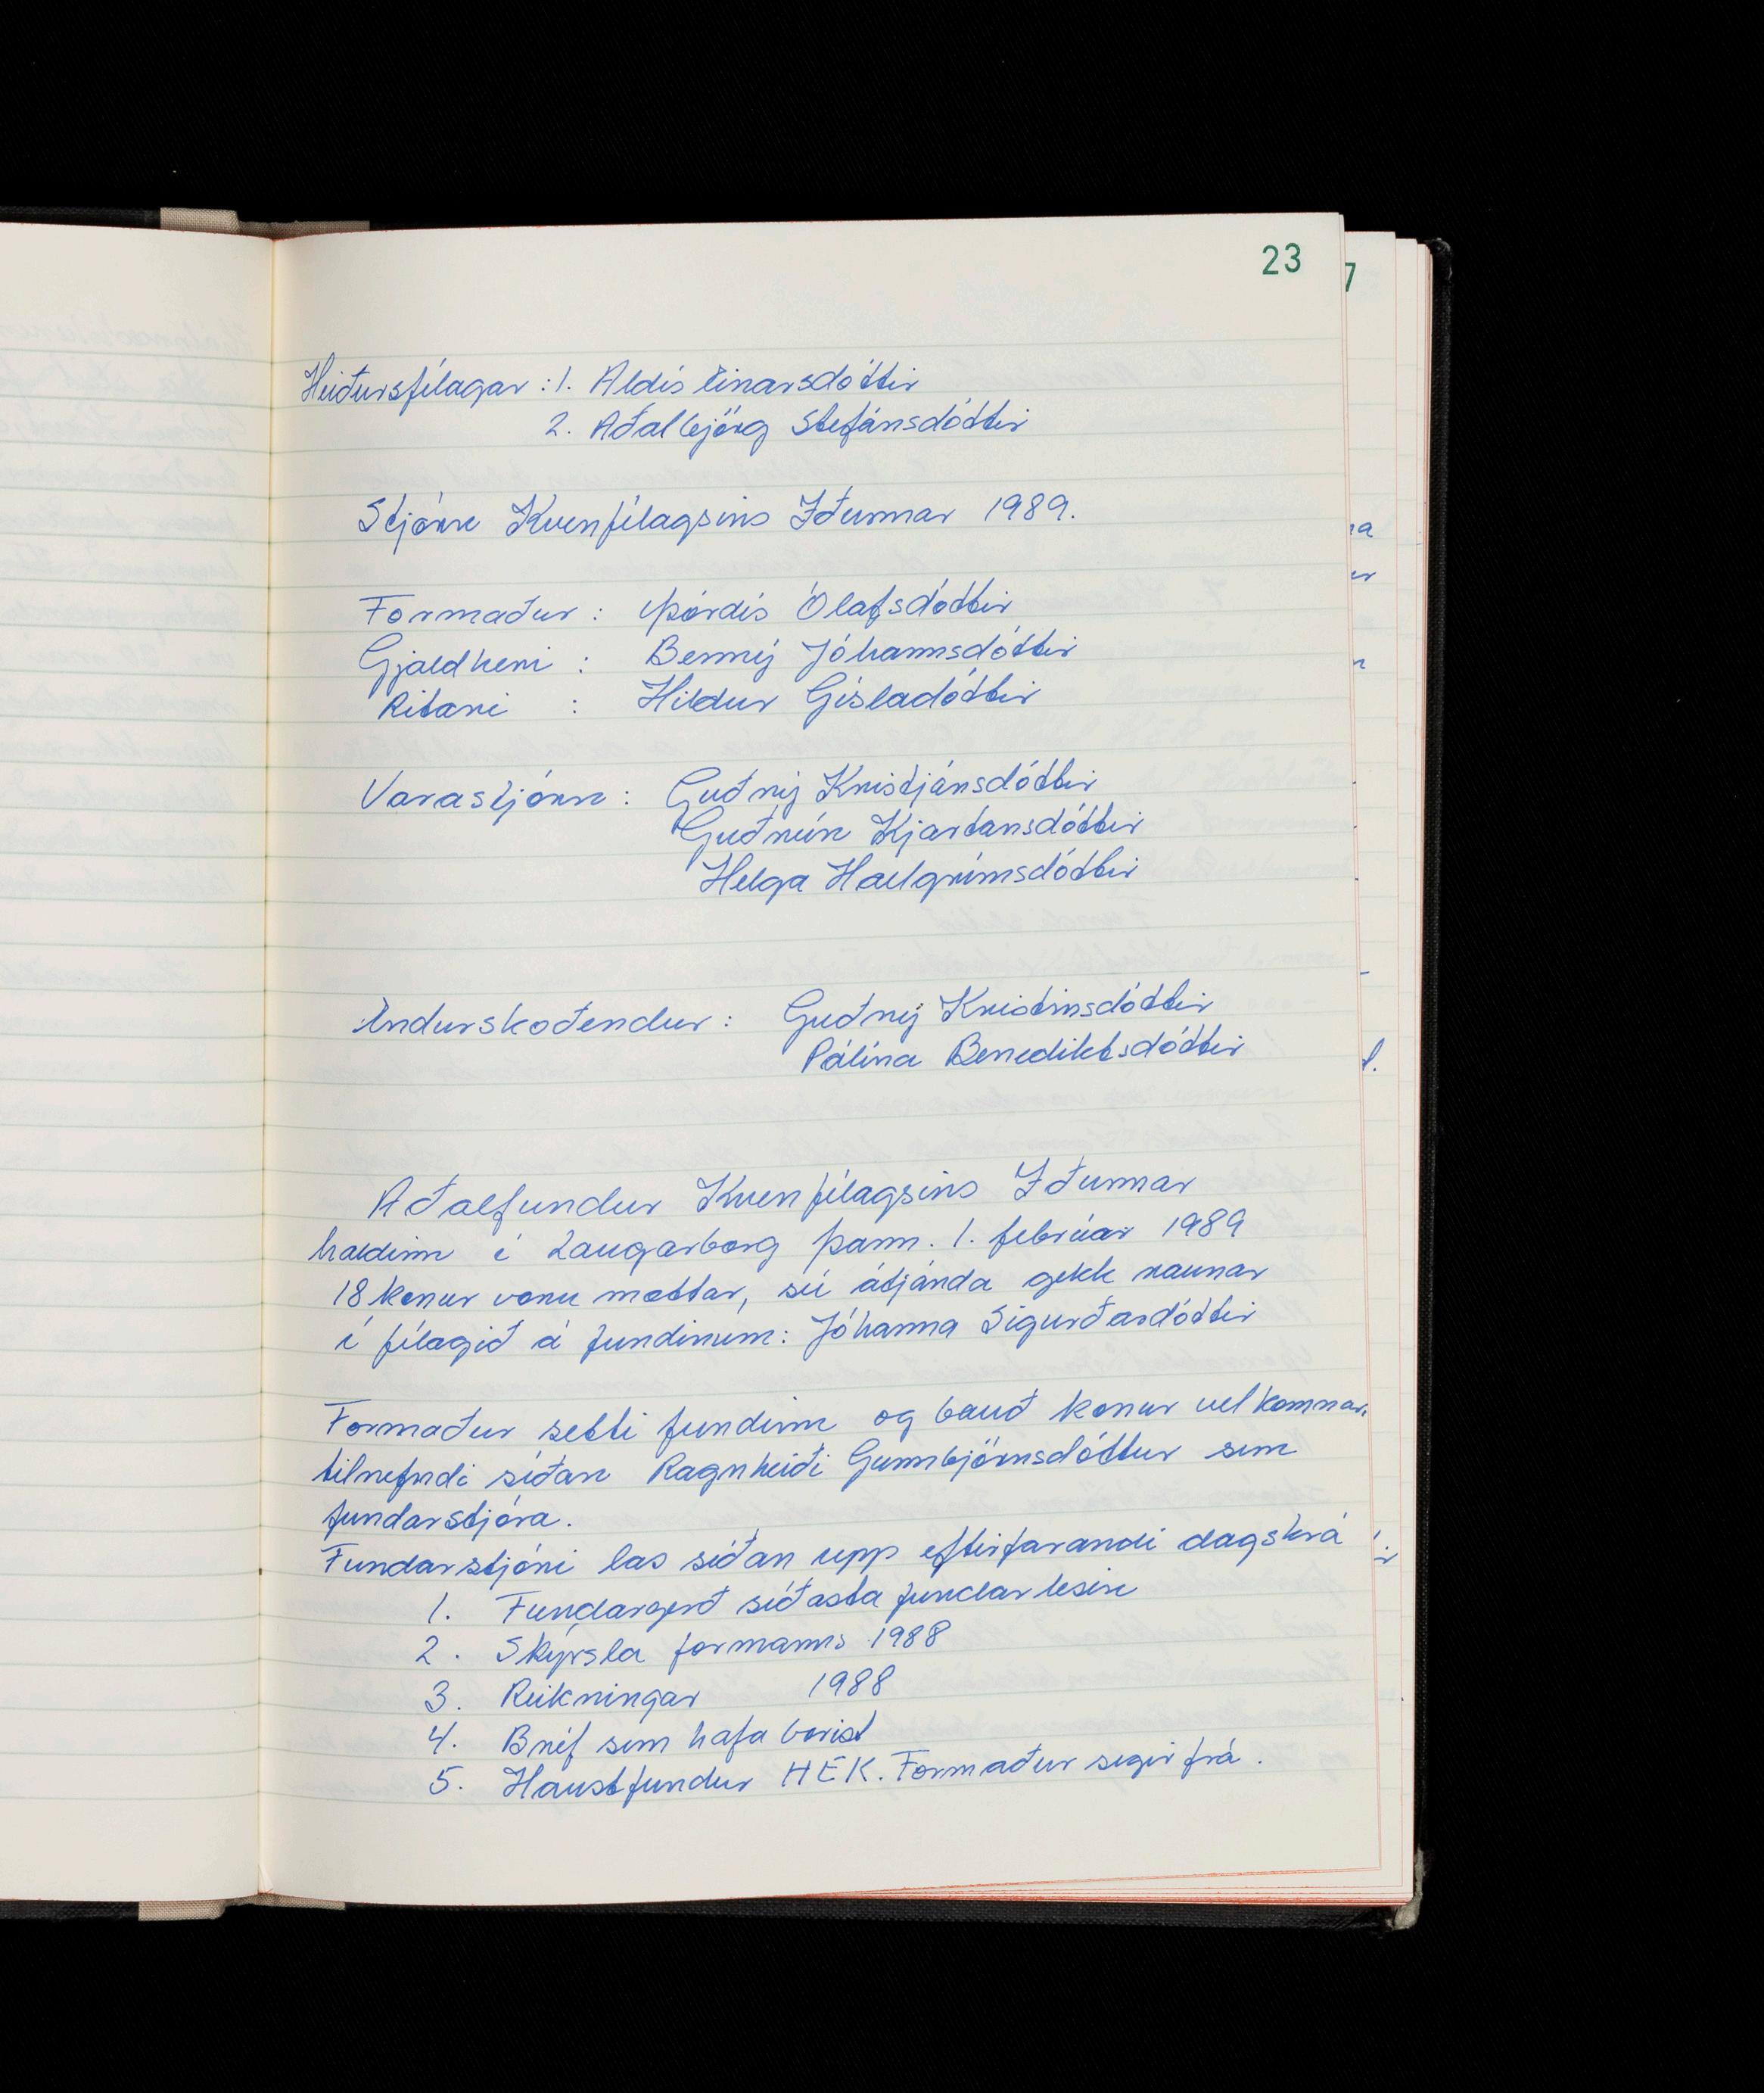 23
7
Heiðursfélagar : 1. Aldís Einarsdóttir
2. Aðalbjörg Stefánsdóttir
Stjórn Kvenfélagsins Iðunnar 1989.
Formaður : Þórdís Ólafsdóttir
Gjaldkeri : Benný Jóhannsdóttir
Ritari : Hildur Gísladóttir
Varastjórn : Guðný Kristjánsdóttir
Guðrún Kjartansdóttir
Helga Hallgrímsdóttir
Endurskoðendur : Guðný Kristinsdóttir
Pálína Benediktsdóttir
Aðalfundur Kvenfélagsins Iðunnar
haldinn í Laugarborg þann. 1. febrúar 1989
18 konur voru mættar, sú átjánda gekk raunar
í félagið á fundinum: Jóhanna Sigurðardóttir
Formaður setti fundinn og bauð konur velkomnar.
tilnefndi síðan Ragnheiði Gunnbjörnsdóttur sem
fundarstjóra.
Fundarstjóri las síðan upp eftirfarandi dagskrá
1. Fundargerð síðasta fundar lesin
2. Skýrsla formanns 1988
3. Reikningar 1988
4. Bréf sem hafa borist
5. Haustfundur HEK. Formaður segir frá.